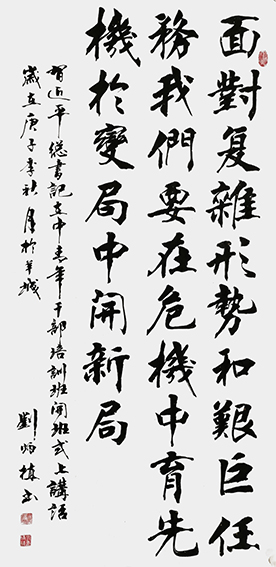 面對复雜形勢和艱巨任
務我們要在危機中育先
機於變局中開新局
習近平總書記在中青年干部培訓班開班式上講話
歲在庚子季秋月於羊城
劉炳